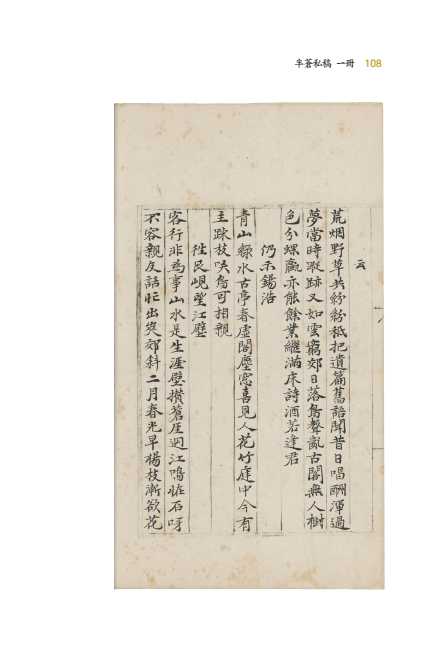 半蒼私稿 一冊 108
云
荒烟野草共紛紛秪把遺篇舊語聞昔日唱酬渾過
夢當時蹤跡又如雲窮郊日落鳥聲亂古閣無人樹
色分螺蠃亦能餘業繼滿床詩酒若逢君
仍示錫浩
青山綠水古亭春虛閣塵窓喜見人花竹庭中今有
主踈枝啼鳥可相親
往民峴望江壁
客行非爲事山水是生涯壁攢蒼厓逈江鳴恠石呀
不容親友話忙出夾郊斜二月春光早楊枝漸欲花